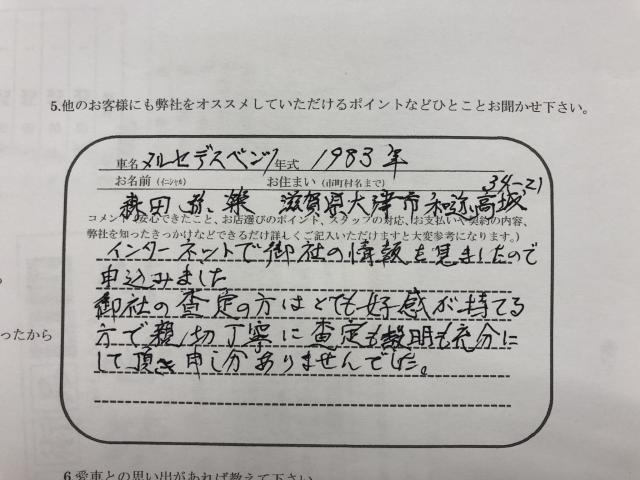 5.他のお客様にも弊社をオススメしていただけるポイントなどひとことお聞かせ下さい。
車名 メルセデスベンツ 年式 1983年
お名前 (イニシャル) お住まい (市町村名まで) 34-21
秋田 滋賀県大津市和邇高城
コメント(安心できたこと、お店選びのポイント、スタッフの対応、お支払いや契約の内容、
弊社を知ったきっかけなどできるだけ詳しくご記入いただけますと大変参考になります。)
インターネットで御社の情報を見ましたので
申込みました
御社の査定の方はとても好感が持てる
ったから
方で親切丁寧に査定も説明も充分に
して頂き申し分ありませんでした。
6.愛車との思い出があれば教えて下さい